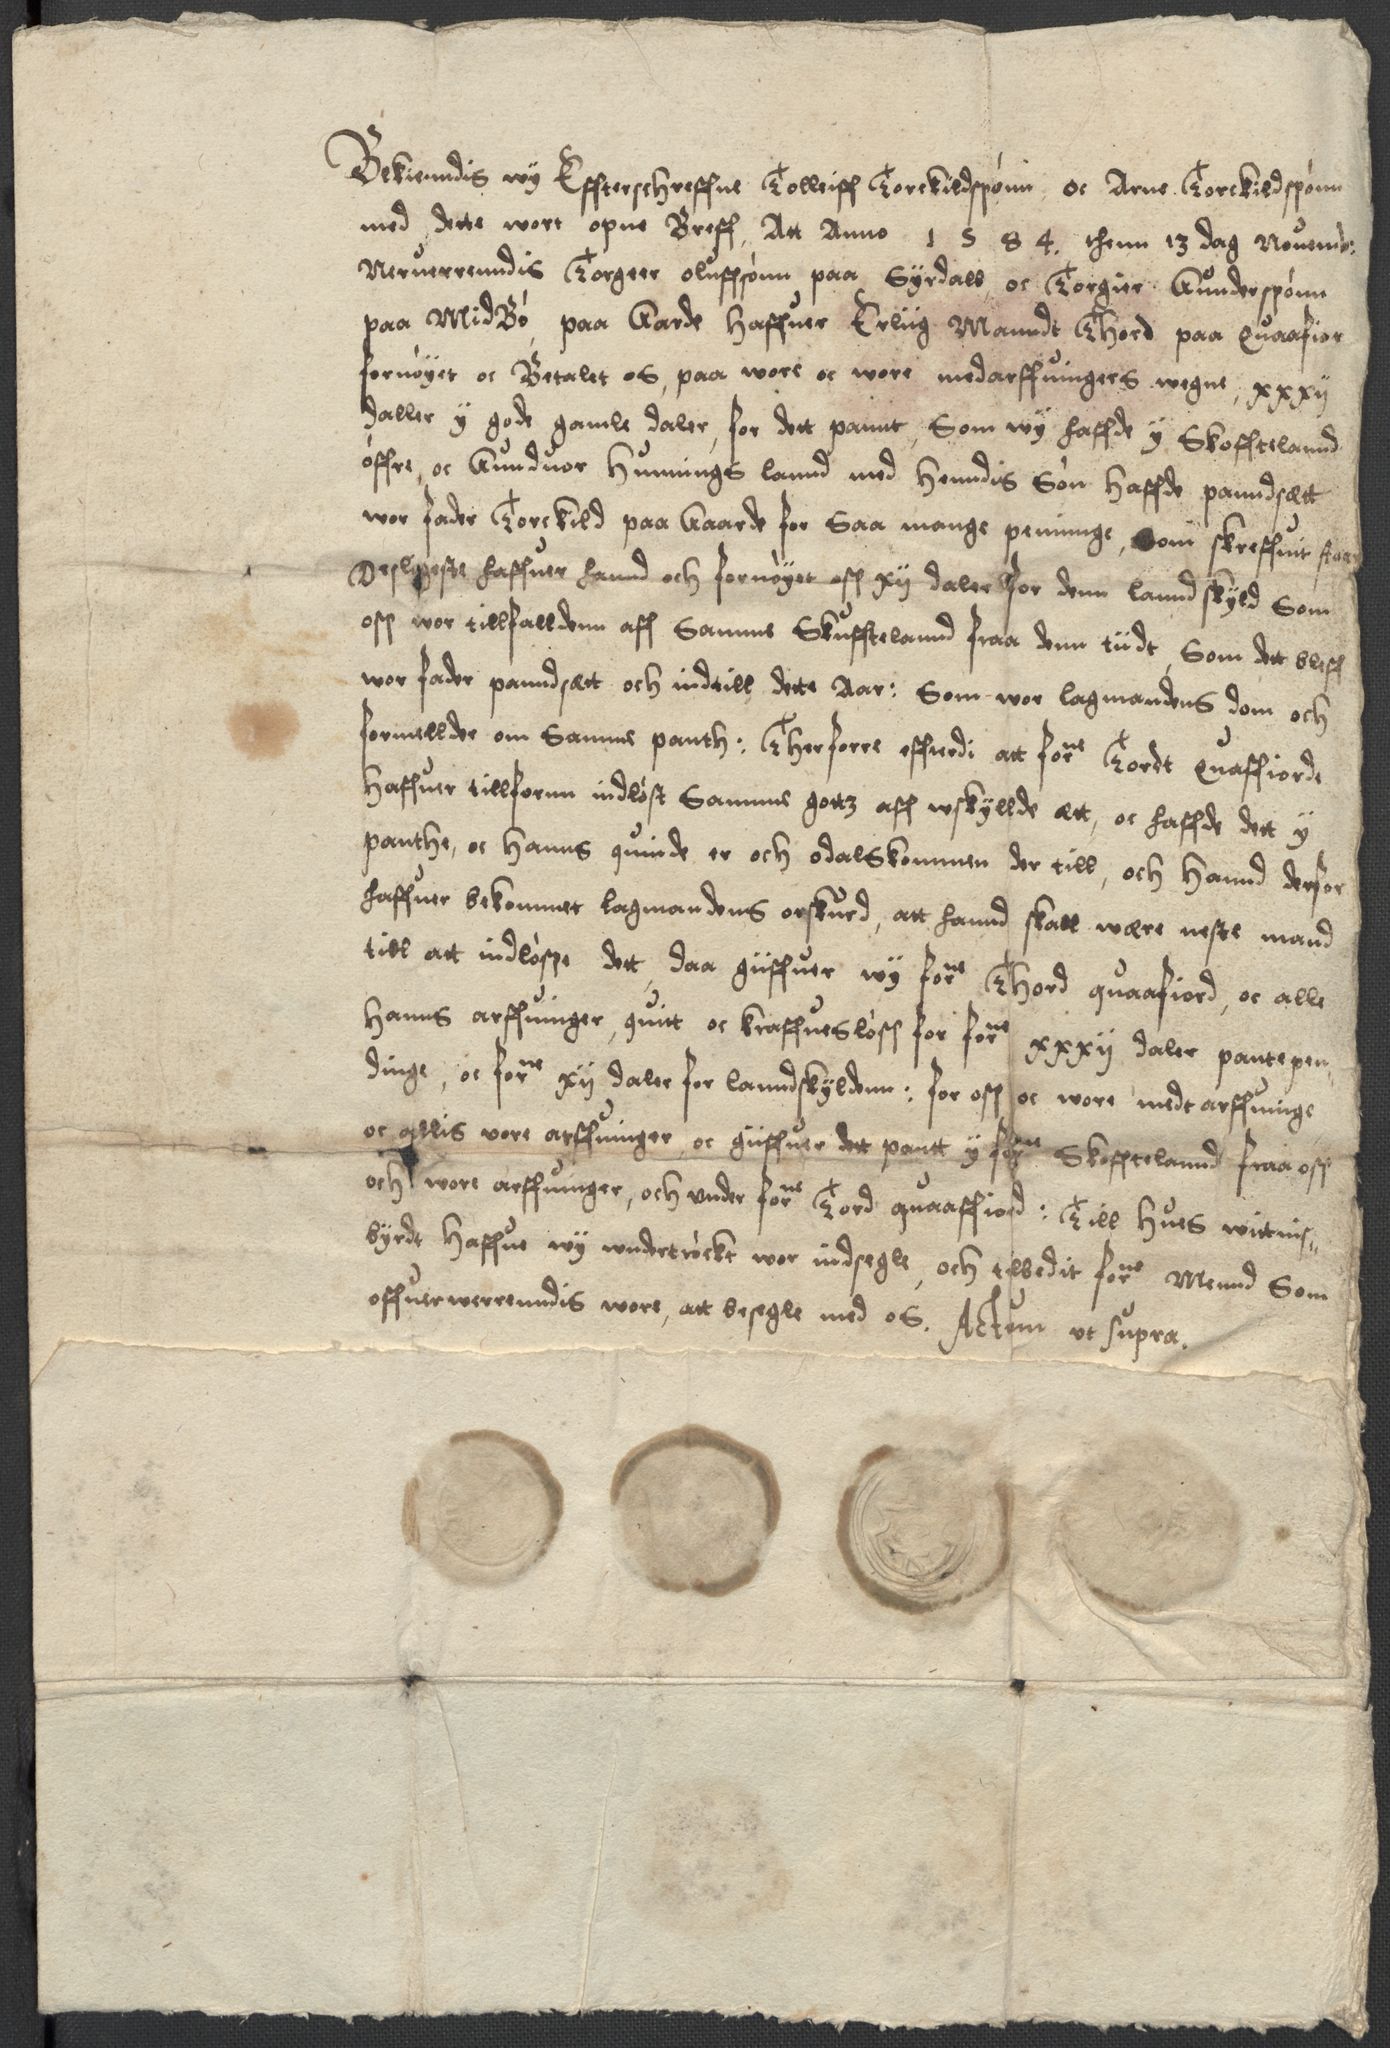 Bekienndis wy Effterschreffne Tolleiff Torckildspønn oc Arne Torckildspønn
med dette wort opne Breff, Att Anno 1 5 8 4. thenn 13 dag Nouemb:
Neruerrenndis Torgeer oluffsønn paa Syrdall, oc Torgier Gunderspønn
paa MidBø, paa Garde haffuer Erliig Manndt Thord paa Quaafior
fornøyet oc Betalet os, paa wore oc wore medarffuingers wegne, xxxij
daller y gode gamle daler, for dett pannt, Som wy haffde y Skofftelannd
øffre, oc Gunduor Hunnings lannd med henndis Søn haffde panndsætt
wor fader Torckild paa Gaarde for Saa mange peninge, Som skreffuit staar
Desligeste haffuer hannd och fornøyet osß xij daler for denn lanndskyld Som
osß wor tillfalldenn aff Samme Skufftelannd fraa denn tiidt, Som dett bleff
wor fader panndsætt och indtill dette Aar: Som wor lagmandens dom och
formellder om Samme panth: Therforre effterdi att forne Tordt Quaffiorde
haffuer tillfornn indløst Samme gottz aff wskyllde ætt, oc haffde dett y
panthe, oc hanns quinde er och odalskommen der till, och hannd derfor
haffuer bekommet lagmandens orskurd, att hannd skall wære neste mand
till att indløsse dett, daa giiffuer wy forne Thord quaafiord, oc alle
hanns arffuinger, quitt oc kraffuesløsß for forne xxxij daler pantepen„
dinge, oc forne xij daler for lanndskyldenn: for osß oc wore medt arffuinge
oc allis vore arffuinger, oc giiffuer dett pantt y forne Skofftelannd fraa osß
och wore arffuinger, och under forne Tord quaaffiord: Till hues wittnis„
byrdt haffue wy undertrøckt wor indsegle, och tilbedit forne Mennd Som
offuerwerrenndis wore, att besegle med os. Actum ut supra.